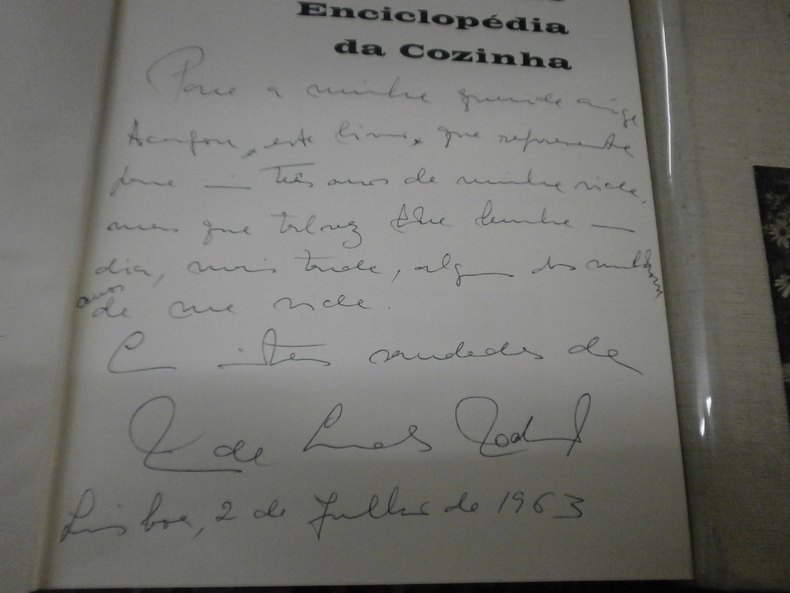 Enciclopédia
da Cozinha
Para a minha querida amiga
este livro, que representa
para três anos da minha vida,
mas que talvez lhe lembre um
dia, mais tarde, alguns dos melhores
anos
da sua vida.
saudades da
de Lourdes
Lisboa, 2 de Julho de 1963